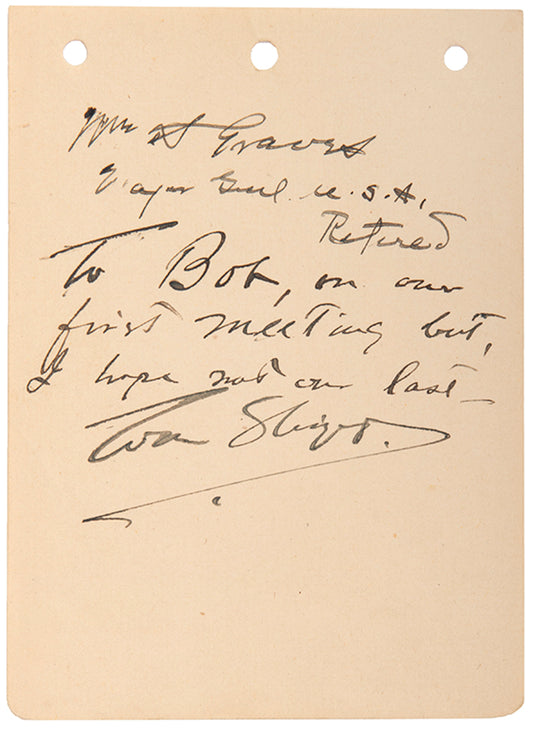 Wm S Graves
Major Genl. U.S.A.
Retired
To Bob, on our
first meeting but,
I hope not our last—